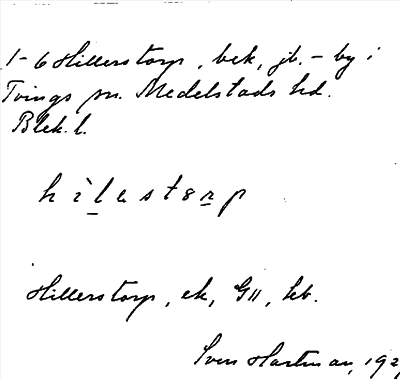 1-6 Hillerstorp, bek, jb. - by i
Tvings sn. Medelstads hd.
Blek. l.
h ì l e s t ɛ r p
Hillerstorp, ek, GII, kb.
Sven Hartman, 192